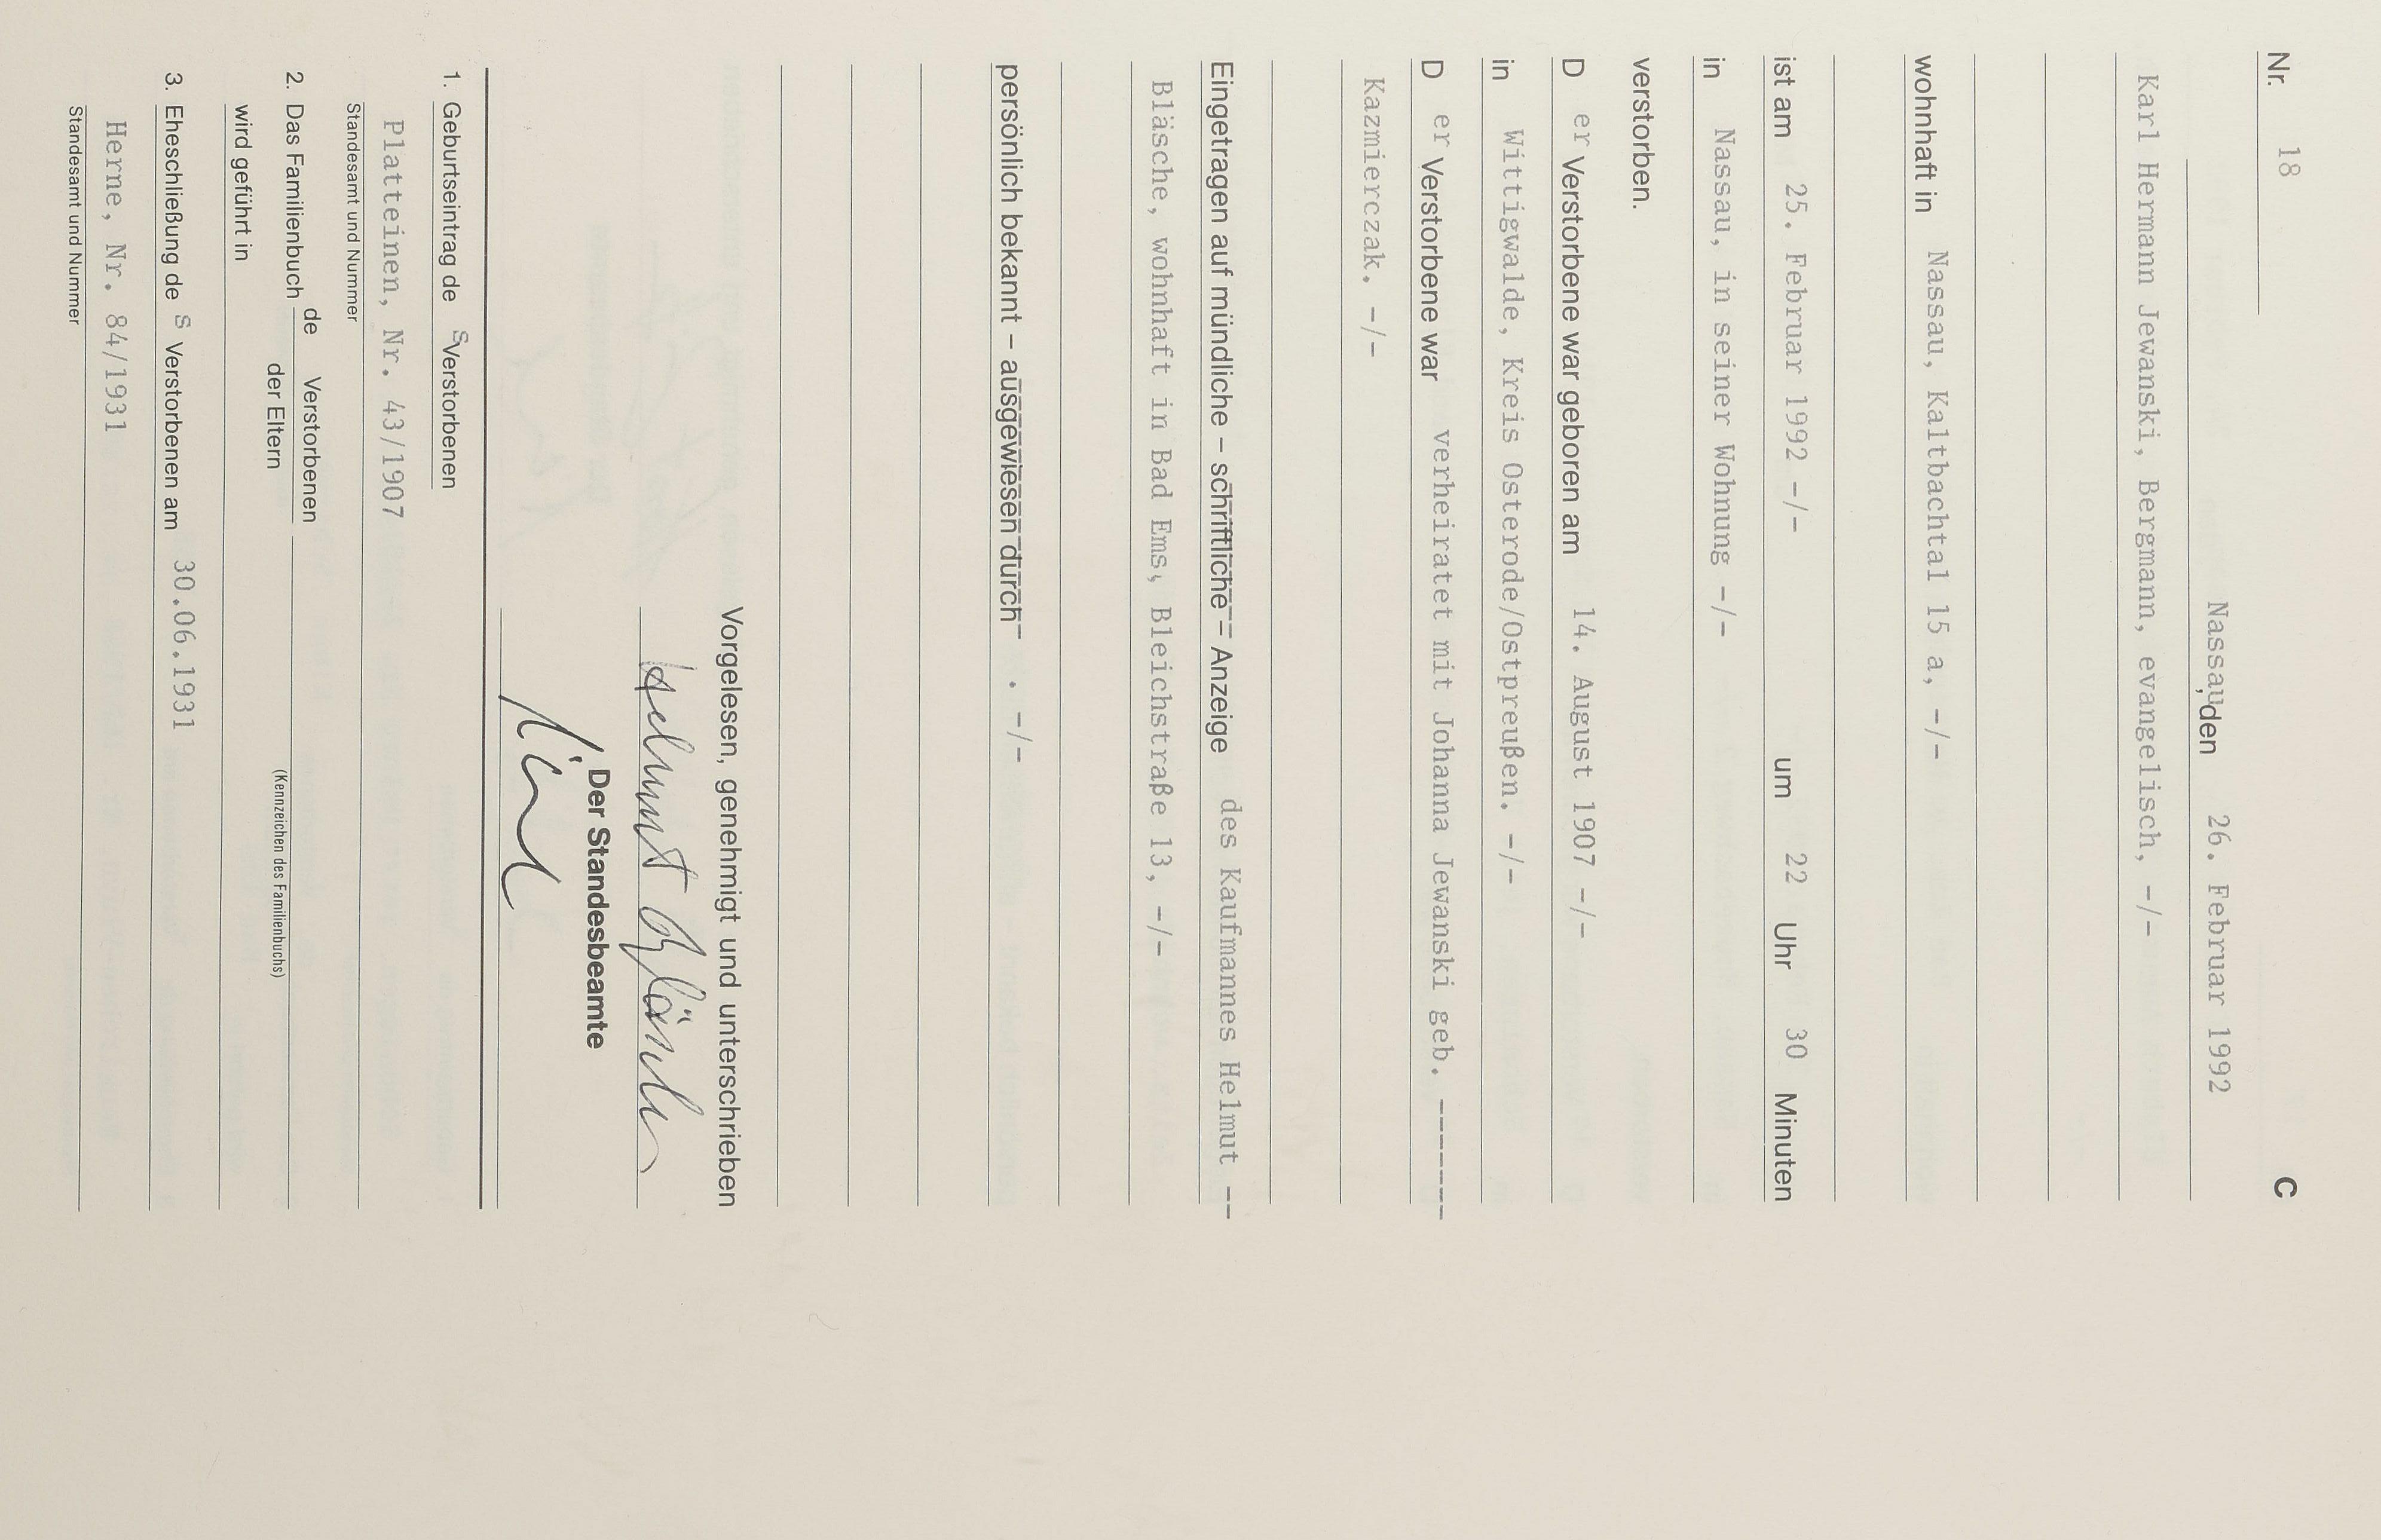 Nr. 18 C
Nassau, den 26. Februar 1992
Karl Hermann Jewanski, Bergmann, evangelisch, -/-
wohnhaft in Nassau, Kaltbachtal 15 a, -/-
ist am 25. Februar 1992 -/- um 22 Uhr 30 Minuten
in Nassau, in seiner Wohnung -/-
verstorben.
D er Verstorbene war geboren am 14. August 1907 -/-
in Wittigwalde, Kreis Osterode/Ostpreußen. -/-
D er Verstorbene war verheiratet mit Johanna Jewanski geb. -------
Kazmierczak. -/-
Eingetragen auf mündliche – schriftliche – Anzeige des Kaufmannes Helmut --
Bläsche, wohnhaft in Bad Ems, Bleichstraße 13, -/-
persönlich bekannt – ausgewiesen durch . -/-
Vorgelesen, genehmigt und unterschrieben
Helmut Bläsche
Der Standesbeamte
1. Geburtseintrag de s Verstorbenen
Platteinen, Nr. 43/1907
Standesamt und Nummer
2. Das Familienbuch de Verstorbenen
der Eltern (Kennzeichen des Familienbuchs)
wird geführt in
3. Eheschließung de s Verstorbenen am 30.06.1931
Herne, Nr. 84/1931
Standesamt und Nummer